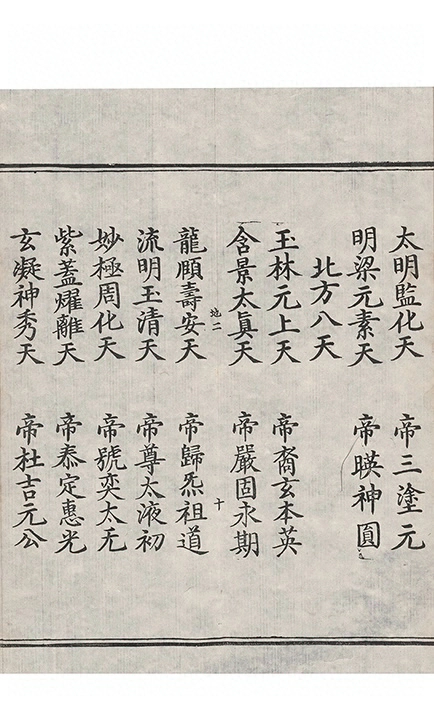 太明監化天　帝三塗元
明梁元素天　帝暎神圓
北方八天
王林元上天　帝裔玄本英
含景太真天　帝嚴固永期
地二　十
龍頋壽安天　帝歸炁祖道
流明玉清天　帝尊太液初
妙極周化天　帝號奕太无
紫蓋燿離天　帝泰定惠光
玄凝神秀天　帝杜吉元公